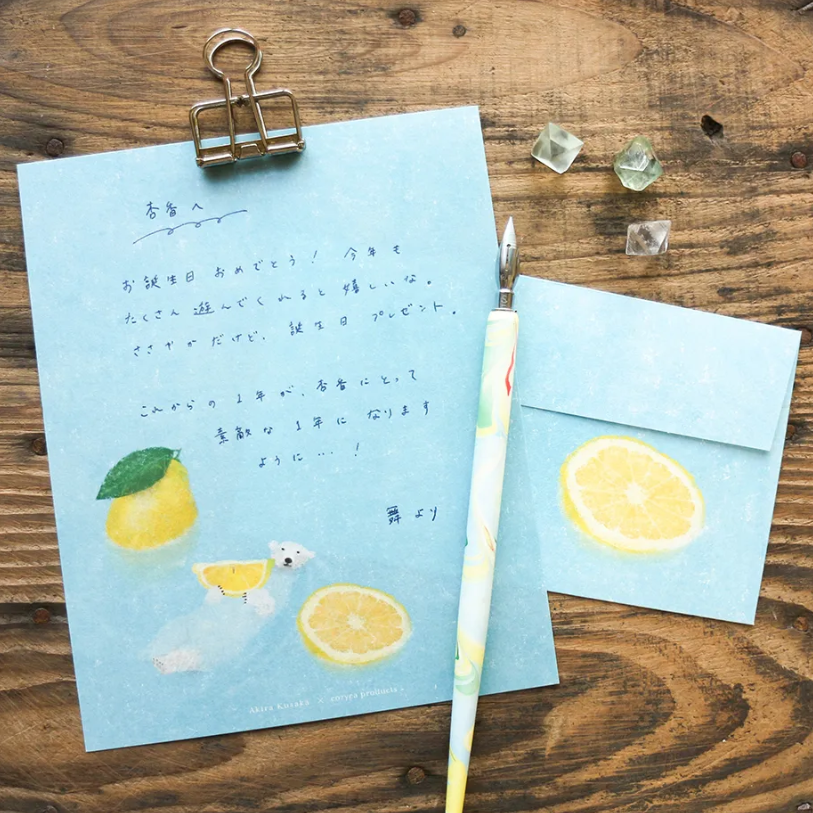 杏香へ
お誕生日おめでとう！今年も
たくさん遊んでくれると嬉しいな。
ささやかだけど、誕生日プレゼント。
これからの1年が、杏香にとって
素敵な1年になります
ように…！
舞より
Akira Kusaka × cozyca products